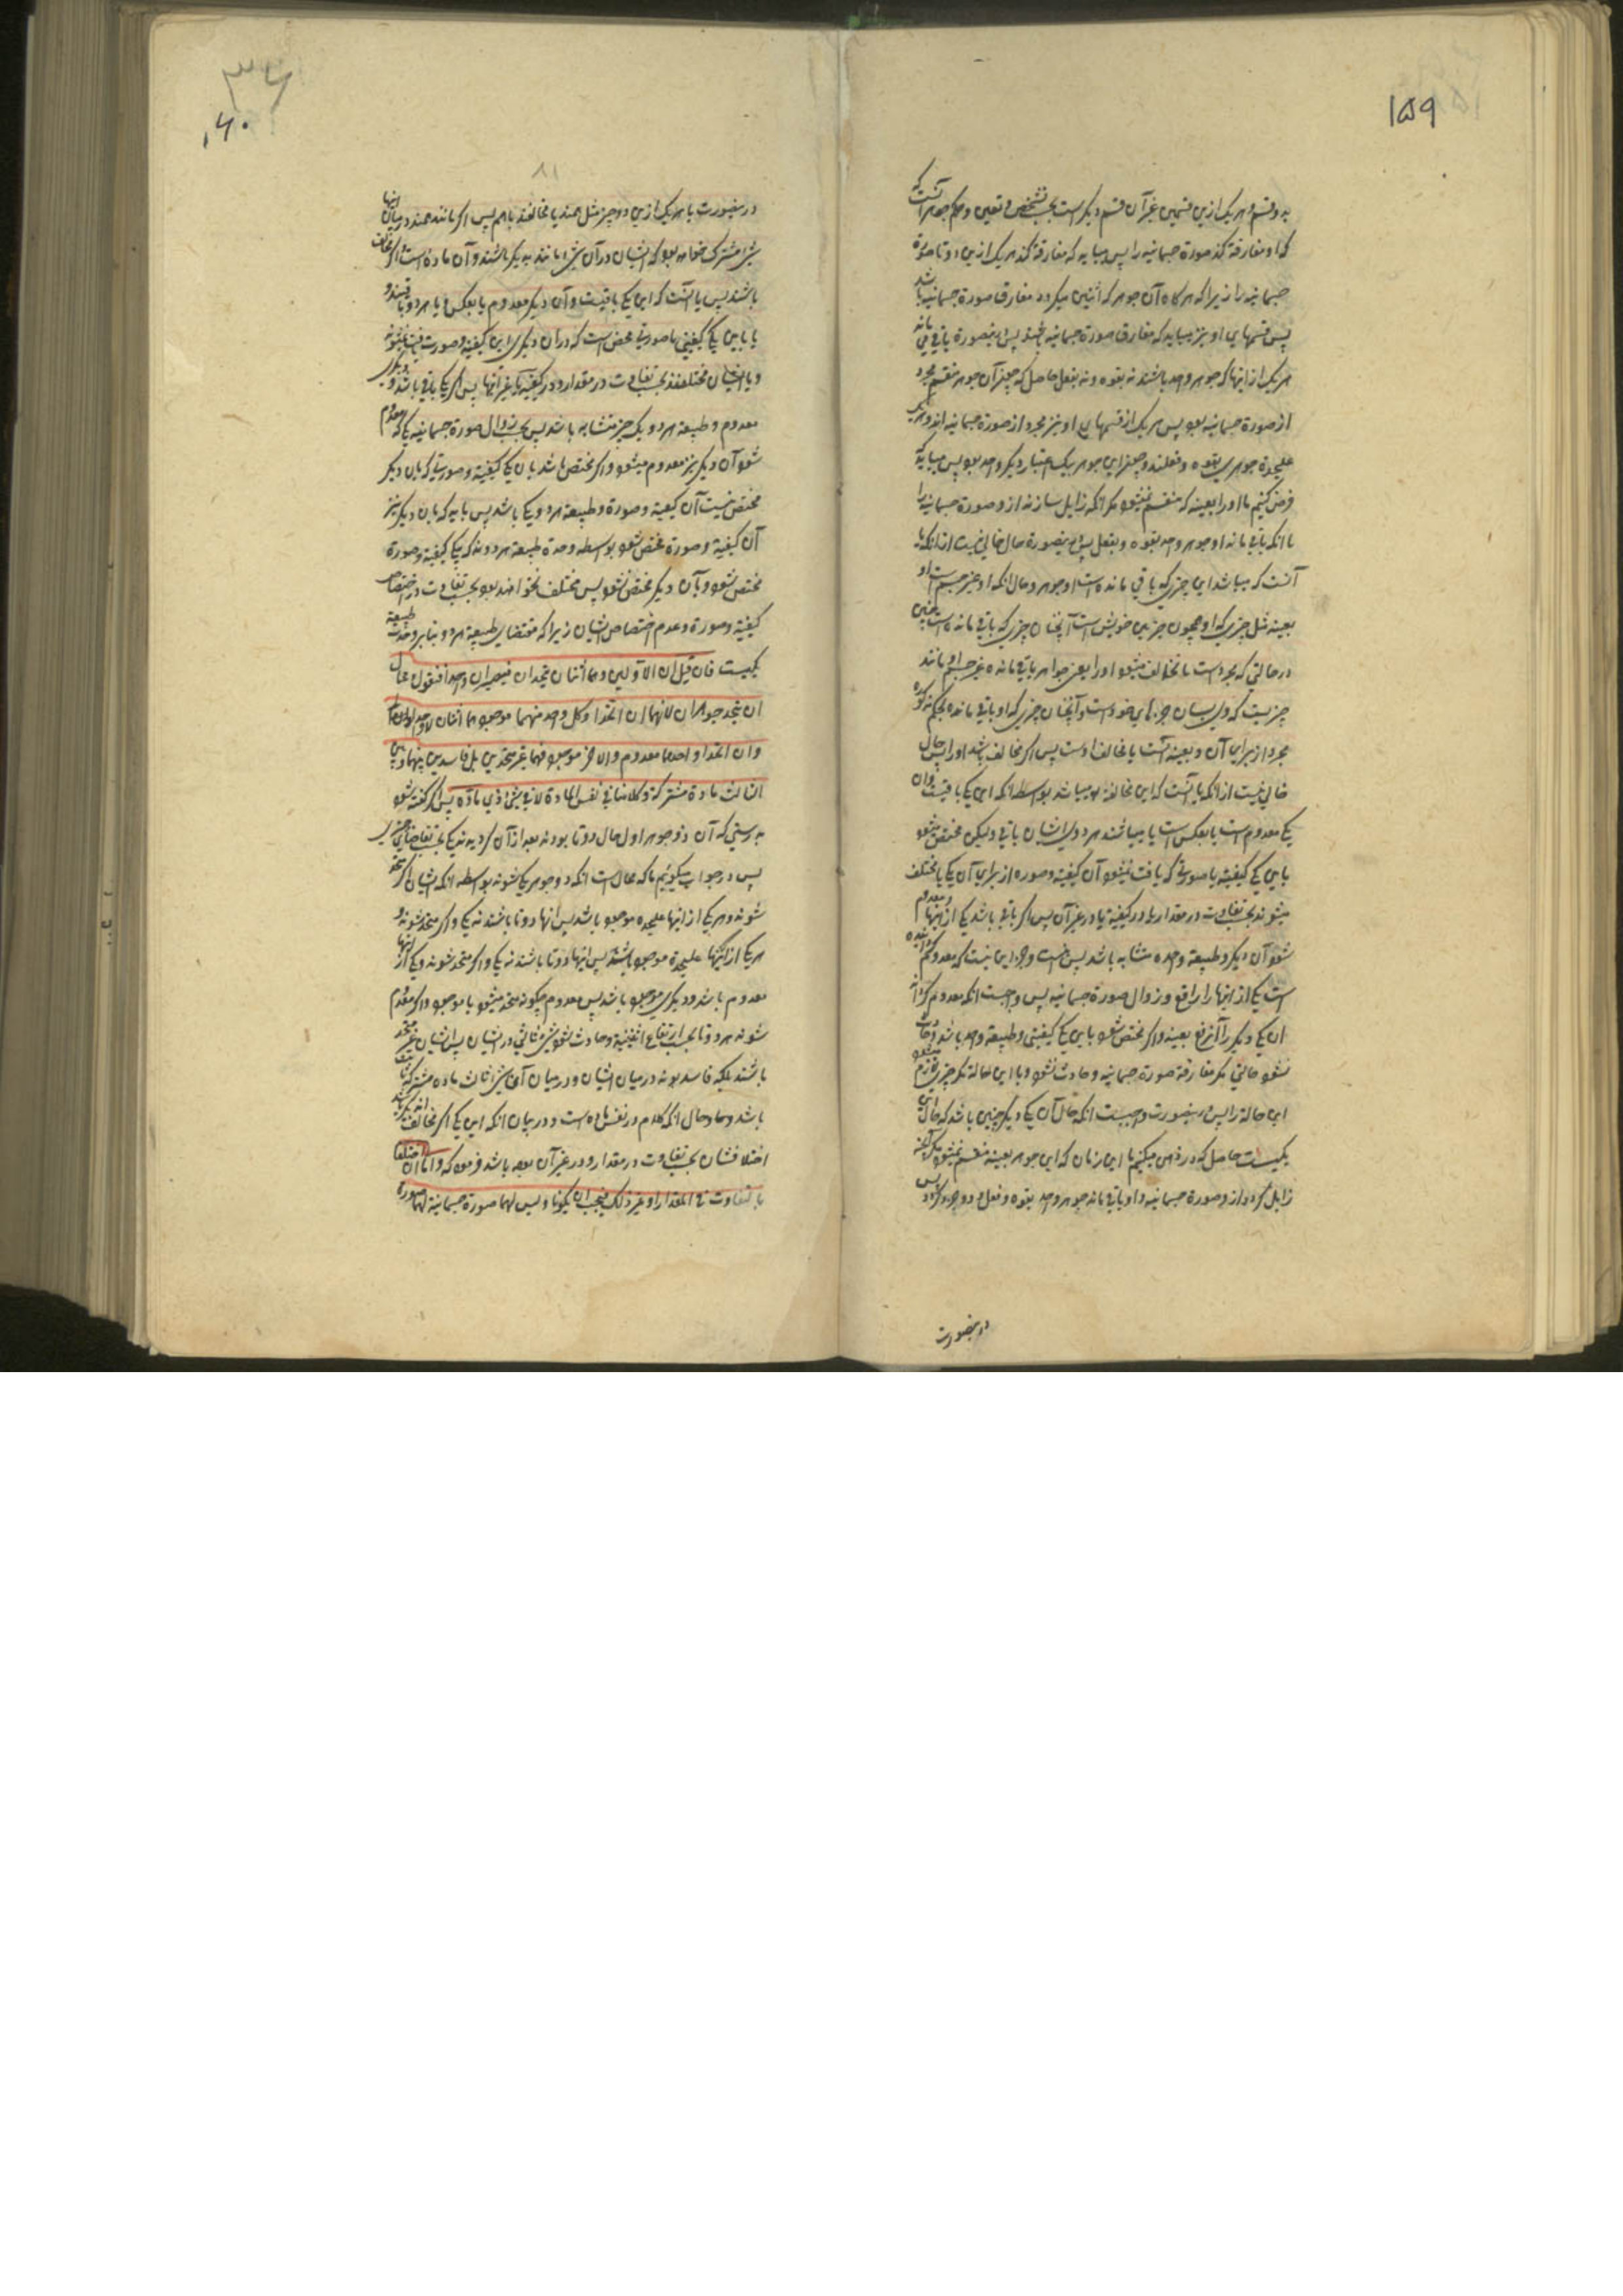 ۱۵۹
به دو قسم و هر یک ازین قسمین غیر آن قسم دیگر است بحسب تشخص و تعین و حکم جوهر آنست که
که او مفارقة کند صورة جسمانیه را پس میباید که مفارقة کند هر یک ازین دو تا صورة
جسمانیه را زیرا که هرکاه آن جوهر که اثنین میکردد مفارق صورة جسمانیه باشد
پس قسمهای او نیز میباید که مفارق صورة جسمانیه باشند پس درینصورة باقی می ماند
هر یک از اینها که جوهر واحد باشند نه بقوه و نه بفعل حاصل که چون آن جوهر منقسم مجرد
از صورة جسمانیه بود پس هر یک از قسمهای او نیز مجرد از صورة جسمانیه اند و هر یک
علیحدة جوهر بقوه و فعلند و چون این جوهر بیک اعتبار دیگر واحد بود پس میباید که
فرض کنیم ما او را بعینه که منقسم نمیشود مکر آنکه زایل سازند از و صورة جسمانیه را
تا آنکه باقی ماند او جوهر واحد بقوه و بفعل پس درینصورة حال خالی نیست از آنکه یا
آنست که میباشد این چیزی که باقی مانده است او جوهر و حال آنکه او غیر جسم است او
بعینه مثل چیزی که او همچون جزء این خویش است آنچنان چیزی که باقی مانده است چنین
در حالتی که مجرد است یا تخالف میشود او را یعنی جواهر باقی مانده غیر جسم او مانند
چیزیست که
مجرد از برای آن و بعینه آنست یا مخالف اوست پس اکر مخالف باشد او را پس حال
خالی نیست از آنکه یا آنست که این مخالفة او میباشد بواسطه آنکه این یکی باقیست و آن
یکی معدوم است یا بعکس است یا میباشند هر دوی ایشان باقی ولیکن مختص میشود
باین یکی کیفیة یا صورتی که یافت نمیشود آن کیفیة و صوره از برای آن یکی یا مختلف
میشوند بحسب تفاوت در مقدار یا در کیفیة یا در غیر آن پس اکر باقی باشد یکی از اینها و معدوم
شود آن دیگر و طبیعة واحده متشابه باشد پس نیست وجه این نیست که معدوم کرده
است یکی از اینها را رافع و زوال صورة جسمانیه پس واجبست آنکه معدوم کرداند
آن یکی دیگر را آنرفع بعینه و اکر مختص شود باین یکی کیفیتی و طبیعة واحد باشد و حادث
نشود حالتی مکر مفارقة صورة جسمانیه و حادث نشود با این حالة مکر چیزی که لازم میشود
این حالة را پس درینصورت واجبست آنکه حال آن یکی دیگر چنین باشد که حال این
یکیست حاصل که در ذهن میکنیم ما این زمان که این جوهر بعینه منقسم نمیشود مکر آنکه
زایل کردد از و صورة جسمانیه و او باقی ماند جوهر واحد بقوه و فعل
درینصورت
۳۶
۱۶۰
۸۱
درینصورت یا هر یک ازین دو چیز مثل همند یا مخالفند باهم پس اکر مانند همند در میان اینها
شیء مشترک خواهد بود که ایشان در آن شیء مانند یکدیگر باشند و آن ماده است و اکر مخالف
باشند پس یا آنست که این یکی باقیست و آن دیگر معدوم یا بعکس و یا هر دو باقیند و
یا باین یکی کیفیتی یا صورتی مختص است که در آن دیگری این کیفیة و صورت یافت نمیشود
و یا ایشان مختلفند بحسب تفاوت در مقدار و در کیفیة یا غیر آنها پس اکر یکی باقی باشد و دیگری
معدوم و طبیعة هر دو یک چیز متشابه باشد پس بحسب زوال صورة جسمانیه یکی که معدوم
شود آن دیگر نیز معدوم میشود و اکر مختص باشد بآن یکی کیفیة و صورتی که بآن دیگر
مختص نیست آن کیفیة و صورة و طبیعة هر دو یکی باشد پس باید که بآن دیگر نیز
آن کیفیة و صورة مختص شود بواسطه وحدة طبیعة هر دو نه آنکه بیکی کیفیة و صورة
مختص شود و بآن دیگر مختص نشود پس مختلف نخواهند بود بحسب تفاوت در اختصاص
کیفیة و صورة و عدم اختصاص ایشان زیرا که مقتضای طبیعة هر دو بنا بر وحدت طبیعة
یکیست فان قیل ان الاولین وهما اثنان یتحدان فیصیران واحدا فنقول محال
ان یتحد جوهران لانهما ان اتحدا وکل واحد منهما موجود فهما اثنان لا واحد
وان اتحدا و احدهما معدوم والاخر موجود فهما غیر متحدین بل فاسدین بینهما وبین
الثالث مادة مشترکة وکلامنا فی نفس المادة لا فی شیء ذی مادة پس اکر کفته شود
بدرستی که آن دو جوهر اول حال دو تا بودند بعد از آن کردیدند یکی بحسب تقاضای
پس در جواب میکوئیم ما که محال است آنکه دو جوهر یکی شوند بواسطه آنکه ایشان اکر متحد
شوند و هر یکی از اینها علیحده موجود باشد پس آنها دو تا باشند نه یکی و اکر متحد شوند و
هر یکی از اینها علیحدة موجود باشند پس اینها دو تا باشند نه یکی و اکر متحد شوند و یکی از اینها
معدوم باشد و دیگری موجود باشد پس معدوم چکونه متحد میشود با موجود و اکر معدوم
شوند هر دو تا بحسب ارتفاع اثنینیة و حادث شود شیء ثالثی در ایشان پس ایشان غیر متحد
باشند بلکه فاسد بوند در میان ایشان و در میان آن شیء ثالث ماده مشترکه ثابت
باشد و حال آنکه کلام در نفس ماده است و در بیان آنکه این یکی اکر مخالف
اختلافشان بحسب تفاوت در مقدار و در غیر آن بوده باشد فرمود که واما ان اختلفا
بالتفاوت فی المقدار او غیر ذلک فیجب ان یکونا ولیس لهما صورة جسمانیة لهما صورة